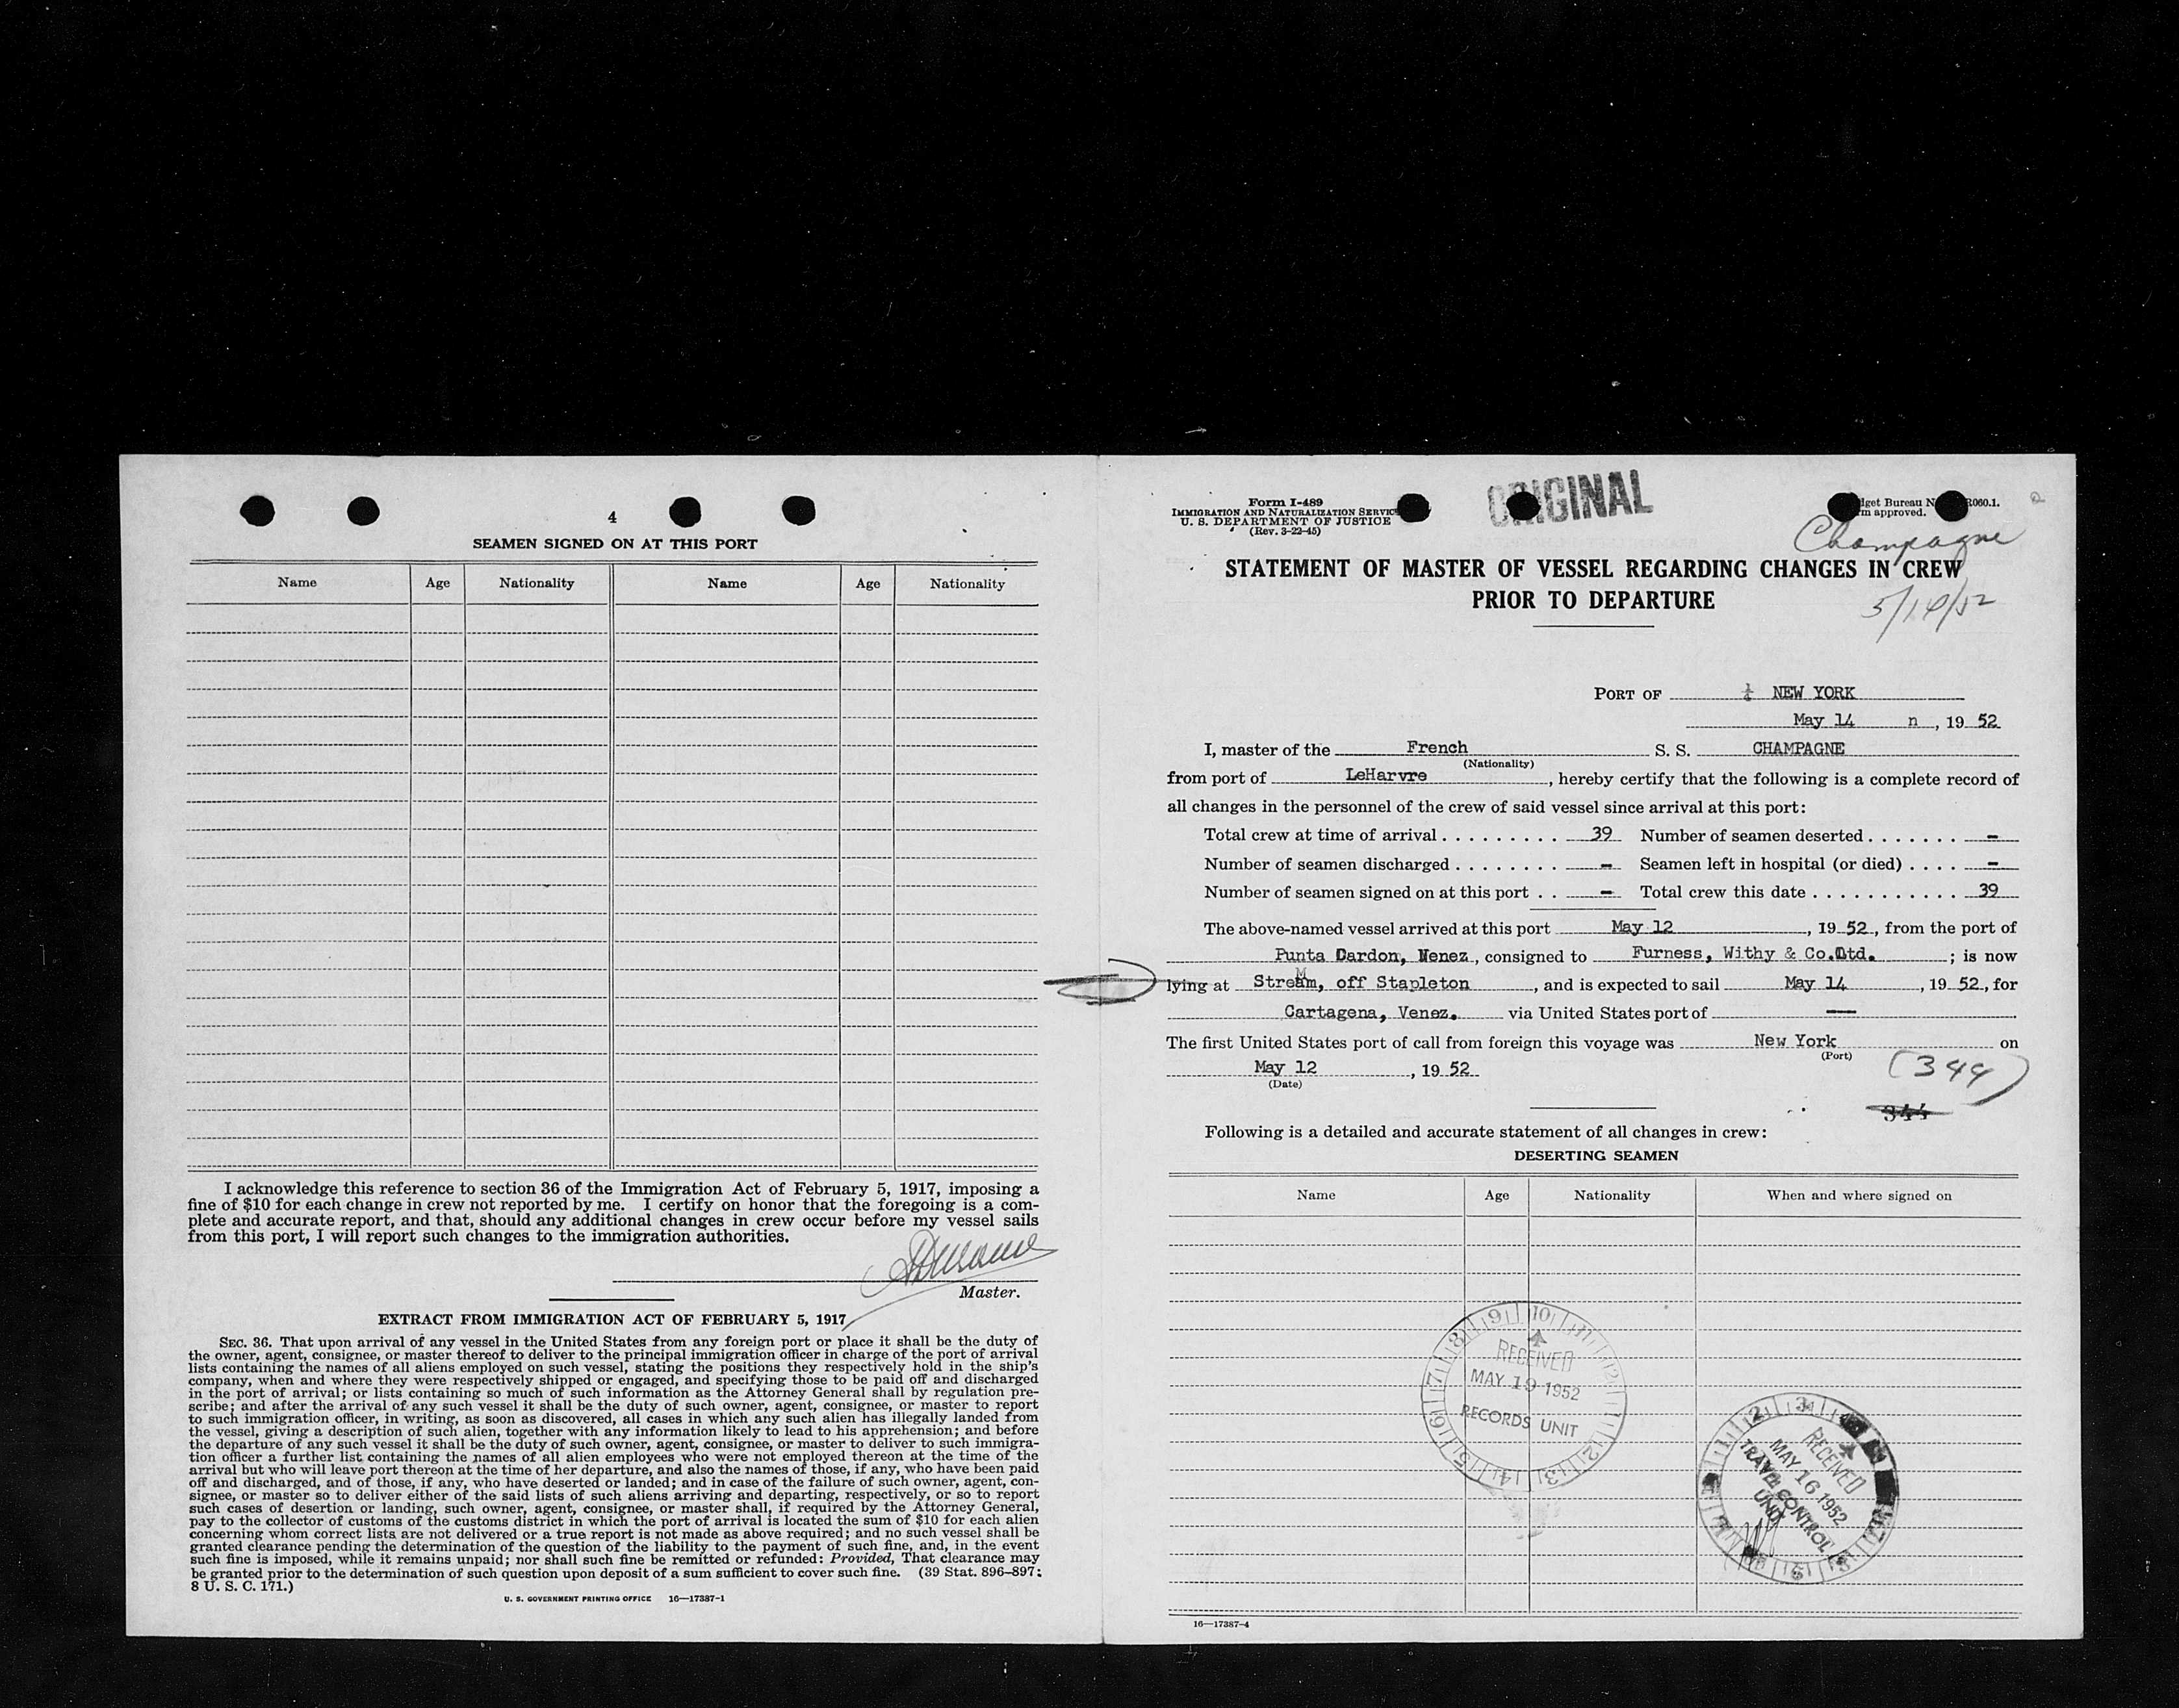 4
SEAMEN SIGNED ON AT THIS PORT
Name Age Nationality Name Age Nationality
I acknowledge this reference to section 36 of the Immigration Act of February 5, 1917, imposing a
fine of $10 for each change in crew not reported by me. I certify on honor that the foregoing is a com-
plete and accurate report, and that, should any additional changes in crew occur before my vessel sails
from this port, I will report such changes to the immigration authorities.
Master.
EXTRACT FROM IMMIGRATION ACT OF FEBRUARY 5, 1917
SEC. 36. That upon arrival of any vessel in the United States from any foreign port or place it shall be the duty of
the owner, agent, consignee, or master thereof to deliver to the principal immigration officer in charge of the port of arrival
lists containing the names of all aliens employed on such vessel, stating the positions they respectively hold in the ship's
company, when and where they were respectively shipped or engaged, and specifying those to be paid off and discharged
in the port of arrival; or lists containing so much of such information as the Attorney General shall by regulation pre-
scribe; and after the arrival of any such vessel it shall be the duty of such owner, agent, consignee, or master to report
to such immigration officer, in writing, as soon as discovered, all cases in which any such alien has illegally landed from
the vessel, giving a description of such alien, together with any information likely to lead to his apprehension; and before
the departure of any such vessel it shall be the duty of such owner, agent, consignee, or master to deliver to such immigra-
tion officer a further list containing the names of all alien employees who were not employed thereon at the time of the
arrival but who will leave port thereon at the time of her departure, and also the names of those, if any, who have been paid
off and discharged, and of those, if any, who have deserted or landed; and in case of the failure of such owner, agent, con-
signee, or master so to deliver either of the said lists of such aliens arriving and departing, respectively, or so to report
such cases of desertion or landing, such owner, agent, consignee, or master shall, if required by the Attorney General,
pay to the collector of customs of the customs district in which the port of arrival is located the sum of $10 for each alien
concerning whom correct lists are not delivered or a true report is not made as above required; and no such vessel shall be
granted clearance pending the determination of the question of the liability to the payment of such fine, and, in the event
such fine is imposed, while it remains unpaid; nor shall such fine be remitted or refunded: Provided, That clearance may
be granted prior to the determination of such question upon deposit of a sum sufficient to cover such fine. (39 Stat. 896–897;
8 U. S. C. 171.)
U. S. GOVERNMENT PRINTING OFFICE 16—17387-1
Form I-489
IMMIGRATION AND NATURALIZATION SERVICE
U. S. DEPARTMENT OF JUSTICE
(Rev. 3-22-45)
ORIGINAL
dget Bureau N R060.1.
m approved.
Champagne
STATEMENT OF MASTER OF VESSEL REGARDING CHANGES IN CREW
PRIOR TO DEPARTURE
PORT OF NEW YORK
May 14 n , 19 52
I, master of the French S. S. CHAMPAGNE
(Nationality)
from port of LeHarvre , hereby certify that the following is a complete record of
all changes in the personnel of the crew of said vessel since arrival at this port:
Total crew at time of arrival . . . . . . . . . . 39 Number of seamen deserted . . . . . . . –
Number of seamen discharged . . . . . . . . – Seamen left in hospital (or died) . . . . –
Number of seamen signed on at this port . . – Total crew this date . . . . . . . . . . . 39
The above-named vessel arrived at this port May 12 , 19 52 , from the port of
Punta Cardon, Venez , consigned to Furness, Withy & Co.Ltd. ; is now
lying at Stream, off Stapleton , and is expected to sail May 14 , 19 52 , for
Cartagena, Venez. via United States port of —
The first United States port of call from foreign this voyage was New York on
(Port)
May 12 , 19 52
(Date)
(344)
344
Following is a detailed and accurate statement of all changes in crew:
DESERTING SEAMEN
Name Age Nationality When and where signed on
RECEIVED
MAY 19 1952
RECORDS UNIT
RECEIVED
MAY 16 1952
TRAVEL CONTROL
UNIT
16—17387-4